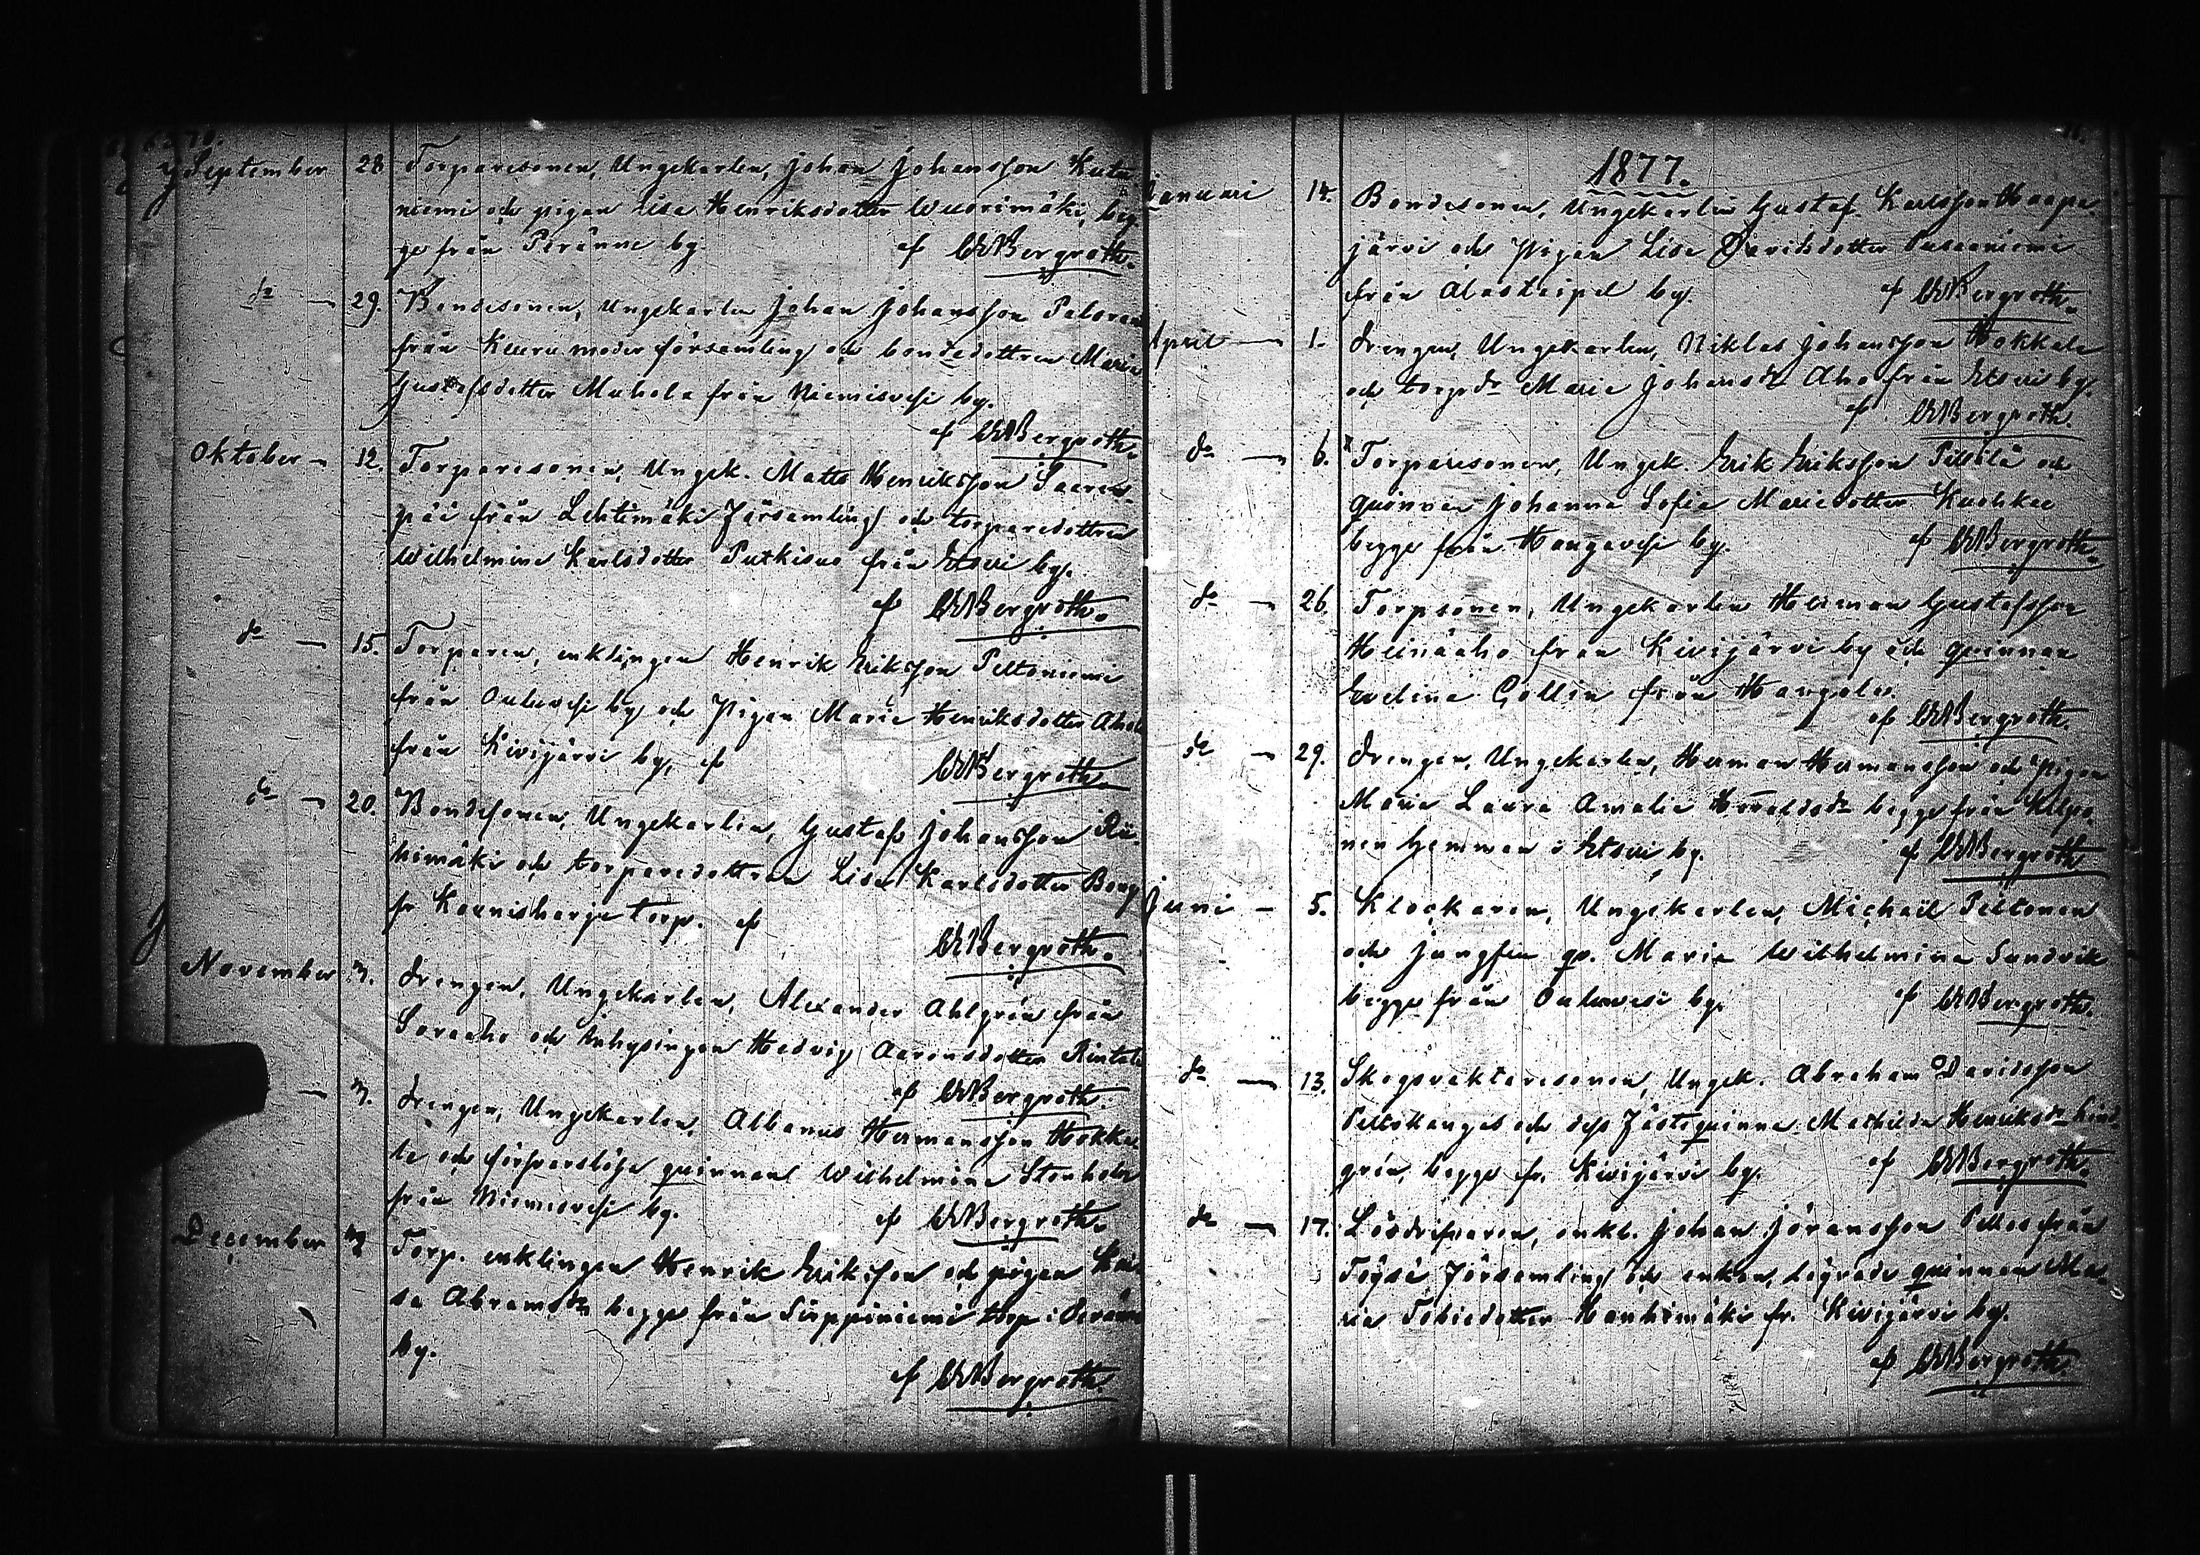 September 28 Torparesonen, Ungekarlen, Johan Johansson Kutu
niemi och pigan Lisa Henriksdotter Wuorimäki, beg
ge från Peränne by. af CWBergroth.
do — 29. Bondesonen, Ungekarlen Johan Johansson Paloran
från Keuru moderförsamling och bondedottren Maria
Gustafsdotter Mahola från Niemisvesi by.
af CWBergroth.
Oktober — 12. Torparesonen, Ungek. Matts Henriksson Saaren-
pää från Lehtimäki Församling och torparedottren
Wilhelmina Karlsdotter Putkisuo från Etseri by.
af CWBergroth.
do — 15. Torparen, enklingen Henrik Eriksson Peltoniemi
från Ouluvesi by och Pigan Maria Henriksdotter Ahola
från Kivijärvi by, af CWBergroth.
do — 20. Bondesonen, Ungekarlen, Gustaf Johansson Rii-
himäki och torparedottren Lisa Karlsdotter Borg
fr Kaunisharju torp. af
CWBergroth.
November 3. Drengen, Ungekarlen, Alexander Ahlgrén från
Soraaho och Inhysingen Hedvig Aaronsdotter Rintala
af CWBergroth.
— 3. Drengen, Ungekarlen, Albanus Hermansson Hokka
la och försvarslösa qvinnan Wilhelmina Stenholm
från Niemisvesi by. af CWBergroth.
December 3 Torp. enklingen Henrik Eriksson och pigan Kai-
sa Abramsdr begge från Sirppiniemi torp i Peränne
by.
af CWBergroth.
1877.
Januari 14. Bondesonen, Ungekarlen Gustaf Karlsson Haapa-
järvi och Pigan Lisa Davidsdotter Pusaaniemi
från Alastaipal by. af CWBergroth.
April — 1. Drengen, Ungekarlen, Niklas Johansson Hokkala
och torpdr Maria Johansdr Aho från Etseri by.
af CWBergroth.
do — 6. Torparesonen, Ungek. Erik Eriksson Pellilä och
qvinnan Johanna Sofia Mariedotter Kuohkee
begge från Hangavesi by. af CWBergroth.
do — 26. Torpsonen, Ungekarlen Herman Gustafsson
Heinäaho från Kivijärvi by och qvinnan
Evelina Gollin från Hangales
af CWBergroth.
do — 29. Drengen, Ungekarlen, Herman Hermansson och Pigan
Maria Laura Amalia begge från Kilpo-
nen hemman i Etseri by. af CWBergroth
Juni — 5. Klockaren, Ungekarlen, Michaël Peltonen
och jungfru qv. Maria Wilhelmina Sundvik
begge från Ouluvesi by. af CWBergroth.
do — 13. Skogsvaktaresonen, Ungek. Abraham Davidsson
Peltokangas och dess Fästeqvinna Mathilda Henriksdr Lind-
grén, begge fr. Kivijärvi by. af CWBergroth.
do — 17. Lösdrifvaren, enkl. Johan Göransson Pellos från
Töysä Församling och enkan, Ma-
ria Tobiedotter Hanhimäki fr. Kivijärvi by.
af CWBergroth.